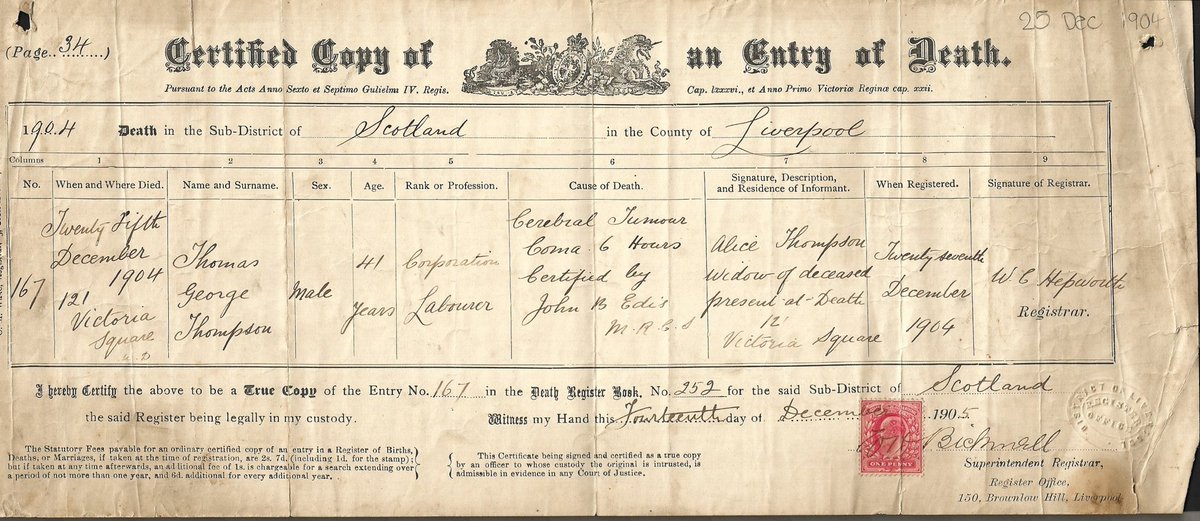 25 Dec 1904
(Page 34)
Certified Copy of an Entry of Death.
Pursuant to the Acts Anno Sexto et Septimo Gulielmi IV. Regis. Cap. lxxxvi., et Anno Primo Victoriæ Reginæ cap. xxii.
1904 Death in the Sub-District of Scotland in the County of Liverpool
Columns 1 2 3 4 5 6 7 8 9
No. When and Where Died. Name and Surname. Sex. Age. Rank or Profession. Cause of Death. Signature, Description, and Residence of Informant. When Registered. Signature of Registrar.
167
Twenty Fifth
December
1904
121
Victoria
Square
Thomas
George
Thompson
Male
41
Years
Corporation
Labourer
Cerebral Tumour
Coma 6 Hours
Certified by
John B Edis
M.R.C.S
Alice Thompson
Widow of deceased
present at Death
Victoria Square
Twenty seventh
December
1904
W. C. Hepworth
Registrar.
I hereby Certify the above to be a True Copy of the Entry No. 167 in the Death Register Book, No. 252 for the said Sub-District of Scotland
the said Register being legally in my custody. Witness my Hand this Fourteenth day of December 1905
The Statutory Fees payable for an ordinary certified copy of an entry in a Register of Births,
Deaths, or Marriages, if taken at the time of registration, are 2s. 7d. (including 1d. for the stamp):
but if taken at any time afterwards, an additional fee of 1s. is chargeable for a search extending over
a period of not more than one year, and 6d. additional for every additional year.
This Certificate being signed and certified as a true copy
by an officer to whose custody the original is intrusted, is
admissible in evidence in any Court of Justice.
ONE PENNY
Bicknell
Superintendent Registrar,
Register Office,
150, Brownlow Hill, Liverpool